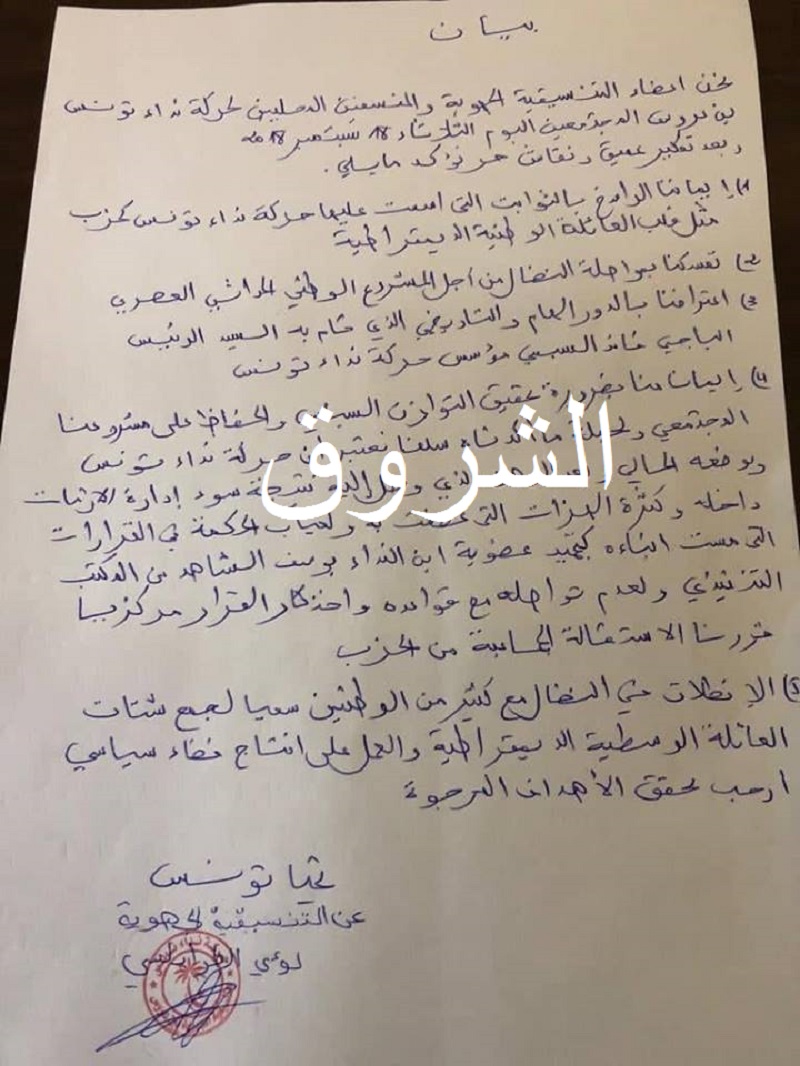 بيان
نحن اعضاء التنسيقية الجهوية والمنسقين المحليين لحركة نداء تونس
بن عروس المجتمعين اليوم الثلاثاء 18 سبتمبر 2018
وبعد تفكير عميق ونقاش حر نؤكد مايلي.
1) إيماننا الراسخ بالثوابت التي اسست عليها حركة نداء تونس كحزب
مثل قلب العائلة الوطنية الديمقراطية
2) تمسكنا بمواصلة النضال من أجل المشروع الوطني الحداثي العصري
3) اعترافنا بالدور الهام والتاريخي الذي قام به السيد الرئيس
الباجي قائد السبسي مؤسس حركة نداء تونس
4) إيمانا منا بضرورة تحقيق التوازن السياسي والحفاظ على مشروعنا
المجتمعي ولجملة ما اكدناه سلفا نعتبر ان حركة نداء تونس
وبوضعه الحالي الذي نتيجة سوء إدارة الازمات
داخله وكثرة الهزات التي عصفت به ولغياب الحكمة في القرارات
التي مست ابناءه كتجميد عضوية ابن النداء يوسف الشاهد من المكتب
التنفيذي ولعدم تواصله مع قواعده واحتكار القرار مركزيا
قررنا الاستقالة الجماعية من الحزب
5) الإنطلاق في النضال مع كثير من الوطنيين سعيا لجمع شتات
العائلة الوسطية الديمقراطية والعمل على انتاج فضاء سياسي
ارحب لتحقق الأهداف المرجوة
تحيا تونس
عن التنسيقية الجهوية
لؤي الطرابلسي
الشروق